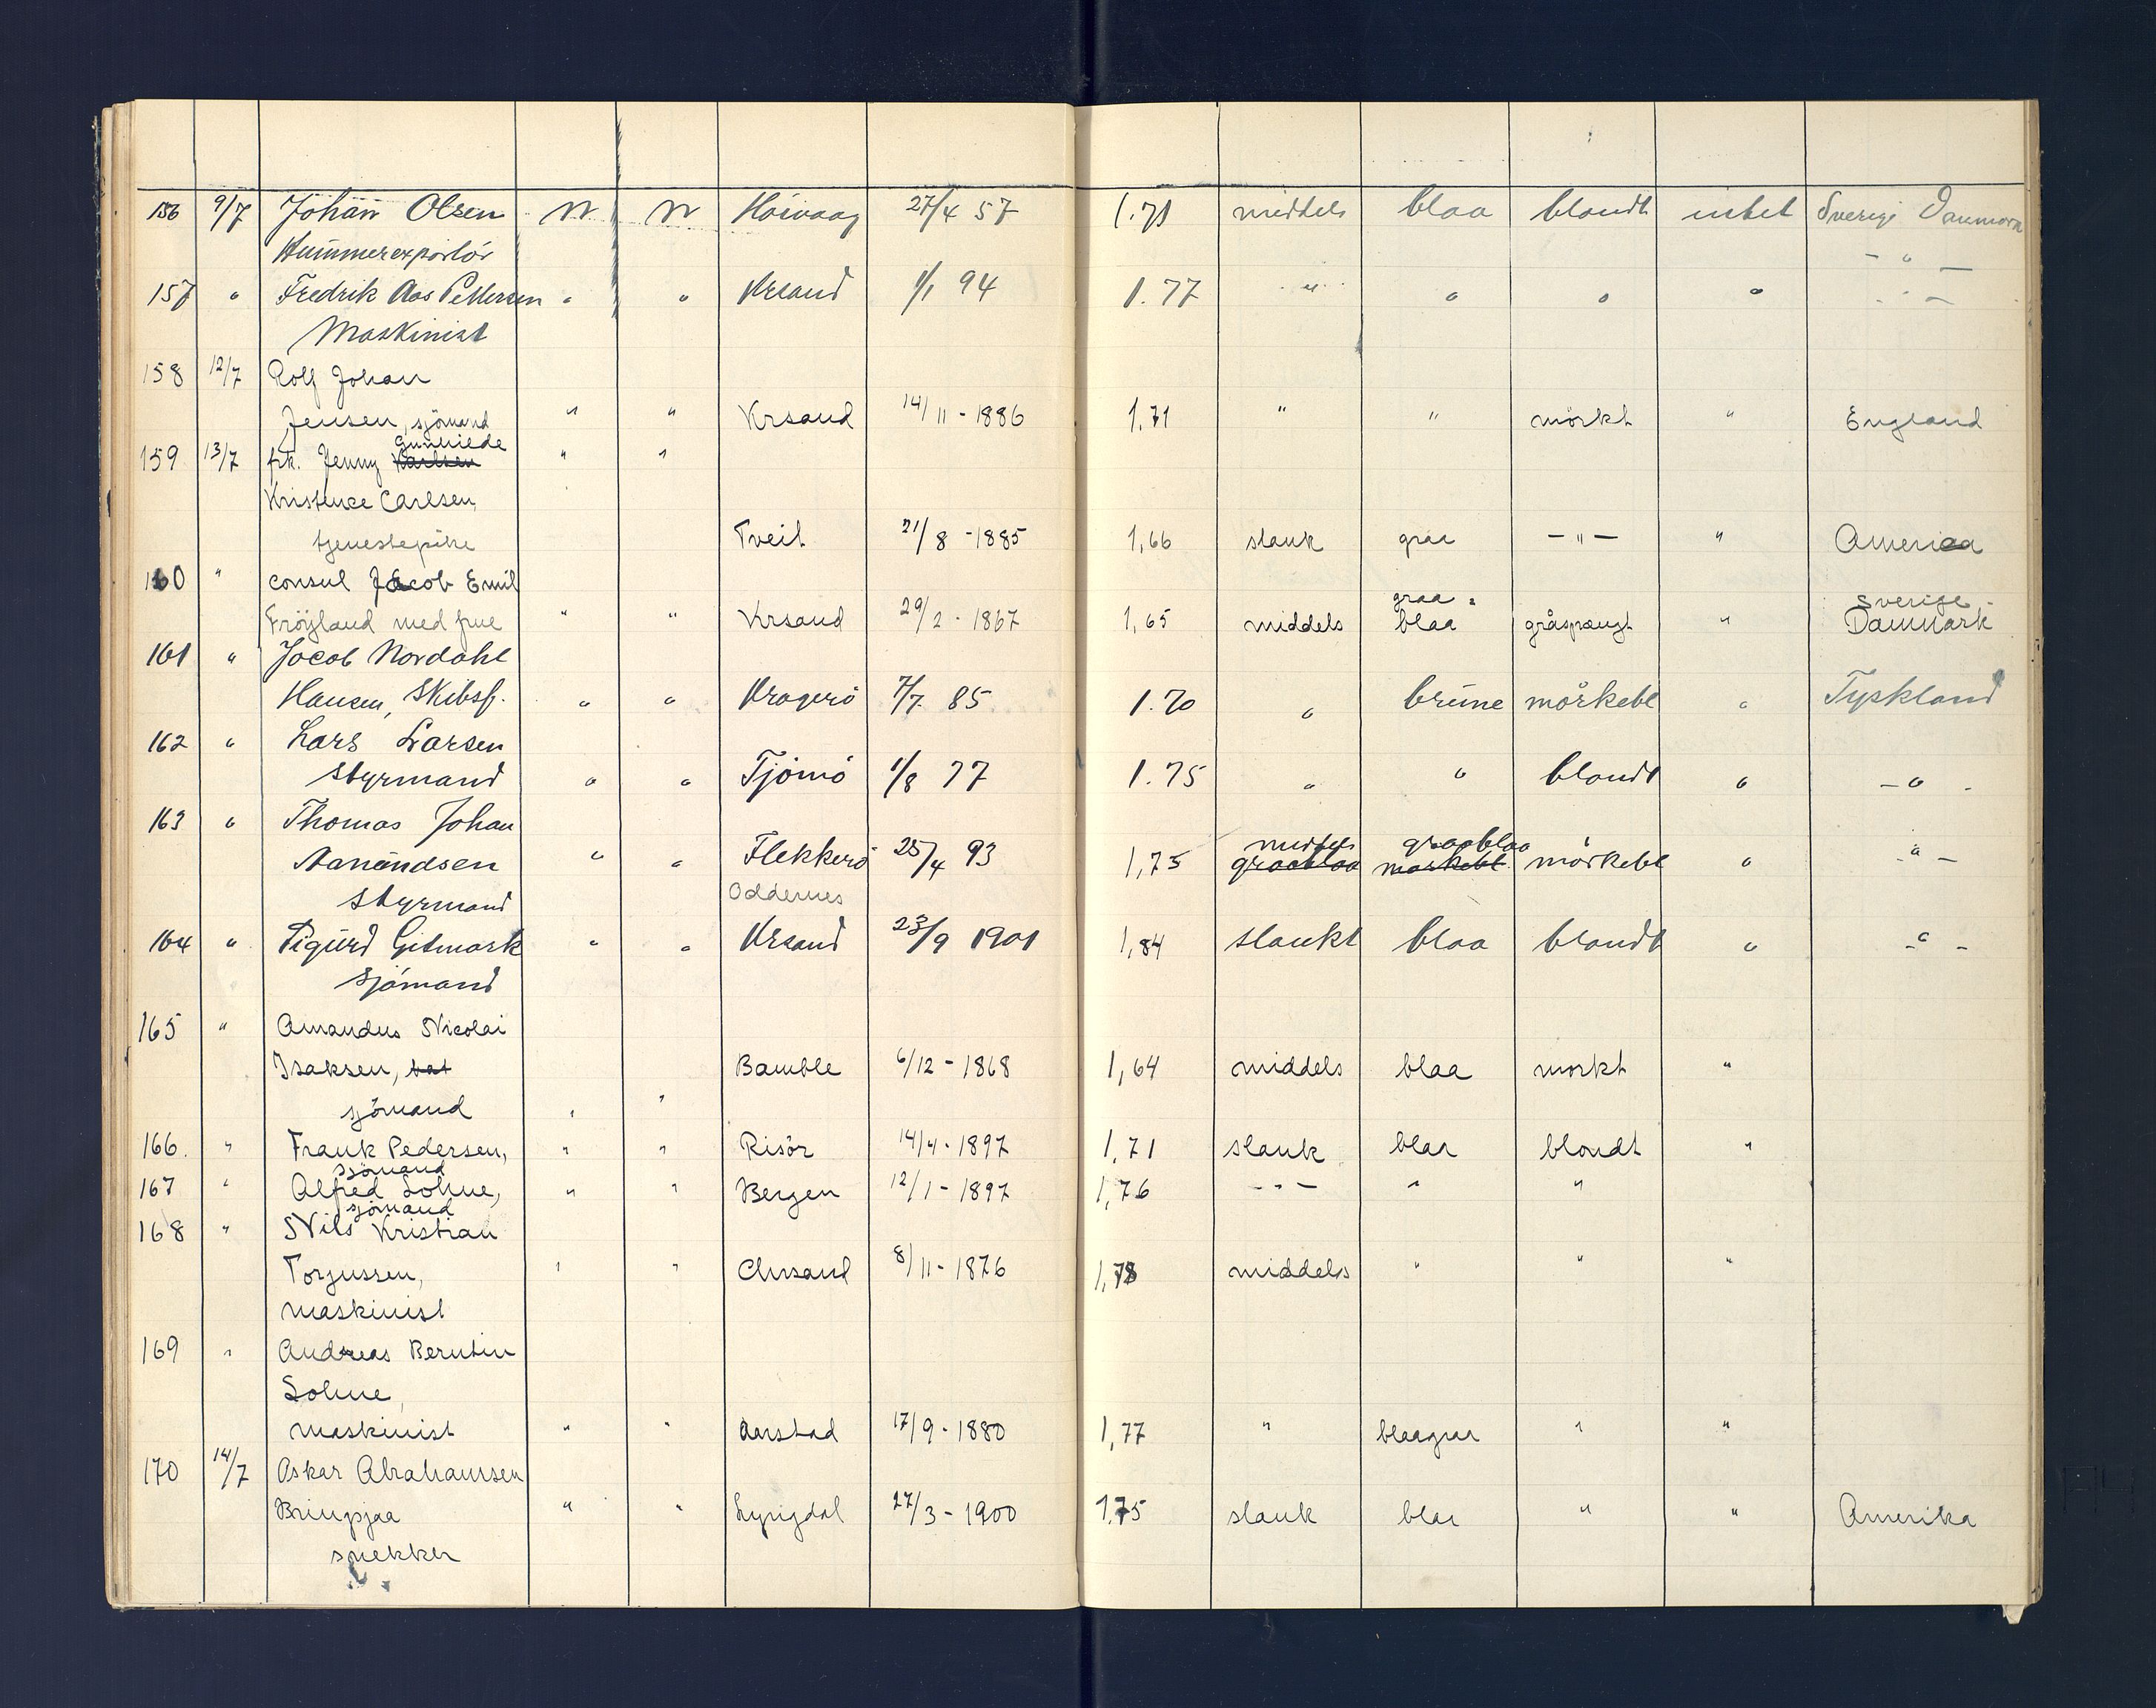 156 9/7 Johan Olsen N N Höivaag 27/4 57 1.71 middels blaa blondt intet Sverige Danmark
Hummerexportör - " -
157 " Fredrik Aas Pettersen " " Krsand 1/1 94 1.77 " " " " - " -
Maskinist
158 12/7 Rolf Johan
Jensen, sjömand " " Krsand 14/11 - 1886 1,71 " " mörkt " England
Gunhilde
159 13/7 frk. Jenny Karlsen " "
Kristence Carlsen,
tjenestepike Tveit 21/8 - 1885 1,66 slank graa - " - " America
160 " consul Jacob Emil
graa = Sverige -
Fröyland med frue " " Krsand 29/2 - 1867 1,65 middels blaa gråsprengt " Danmark
161 " Jacob Nordahl
Hansen, Skibsf. " " Kragerö 7/7 85 1.70 " brune mörkebl " Tyskland
162 " Lars Larsen
Styrmand " " Tjömö 1/8 77 1.75 " " blondt " - " -
163 " Thomas Johan
middels graablaa
Aanundsen " " Flekkerö 25/4 93 1,75 graablaa mörkebl mörkebl " - " -
Styrmand Oddernes
164 " Sigurd Gitmark " " Krsand 23/9 1901 1,84 slankt blaa blondt " - " -
Sjömand
165 " Amandus Nicolai
Isaksen, bat Bamble 6/12 - 1868 1,64 middels blaa mörkt "
sjömand " "
166. " Frank Pedersen, " " Risör 14/4 - 1897 1,71 slank blaa blondt "
sjömand
167 " Alfred Sohne, " " Bergen 12/1 - 1897 1,76 - " - " "
sjömand
168 " Nils Kristian
Torjussen, " " Chrsand 8/11 - 1876 1,78 middels " " "
maskinist
169 " Andreas Berntin
Sohne,
maskinist " " Aarstad 17/9 - 1880 1,77 " blaagraa " "
170 14/7 Oskar Abrahamsen
Bringsjaa " " Lyngdal 27/3 - 1900 1,75 slank blaa " " Amerika
snekker